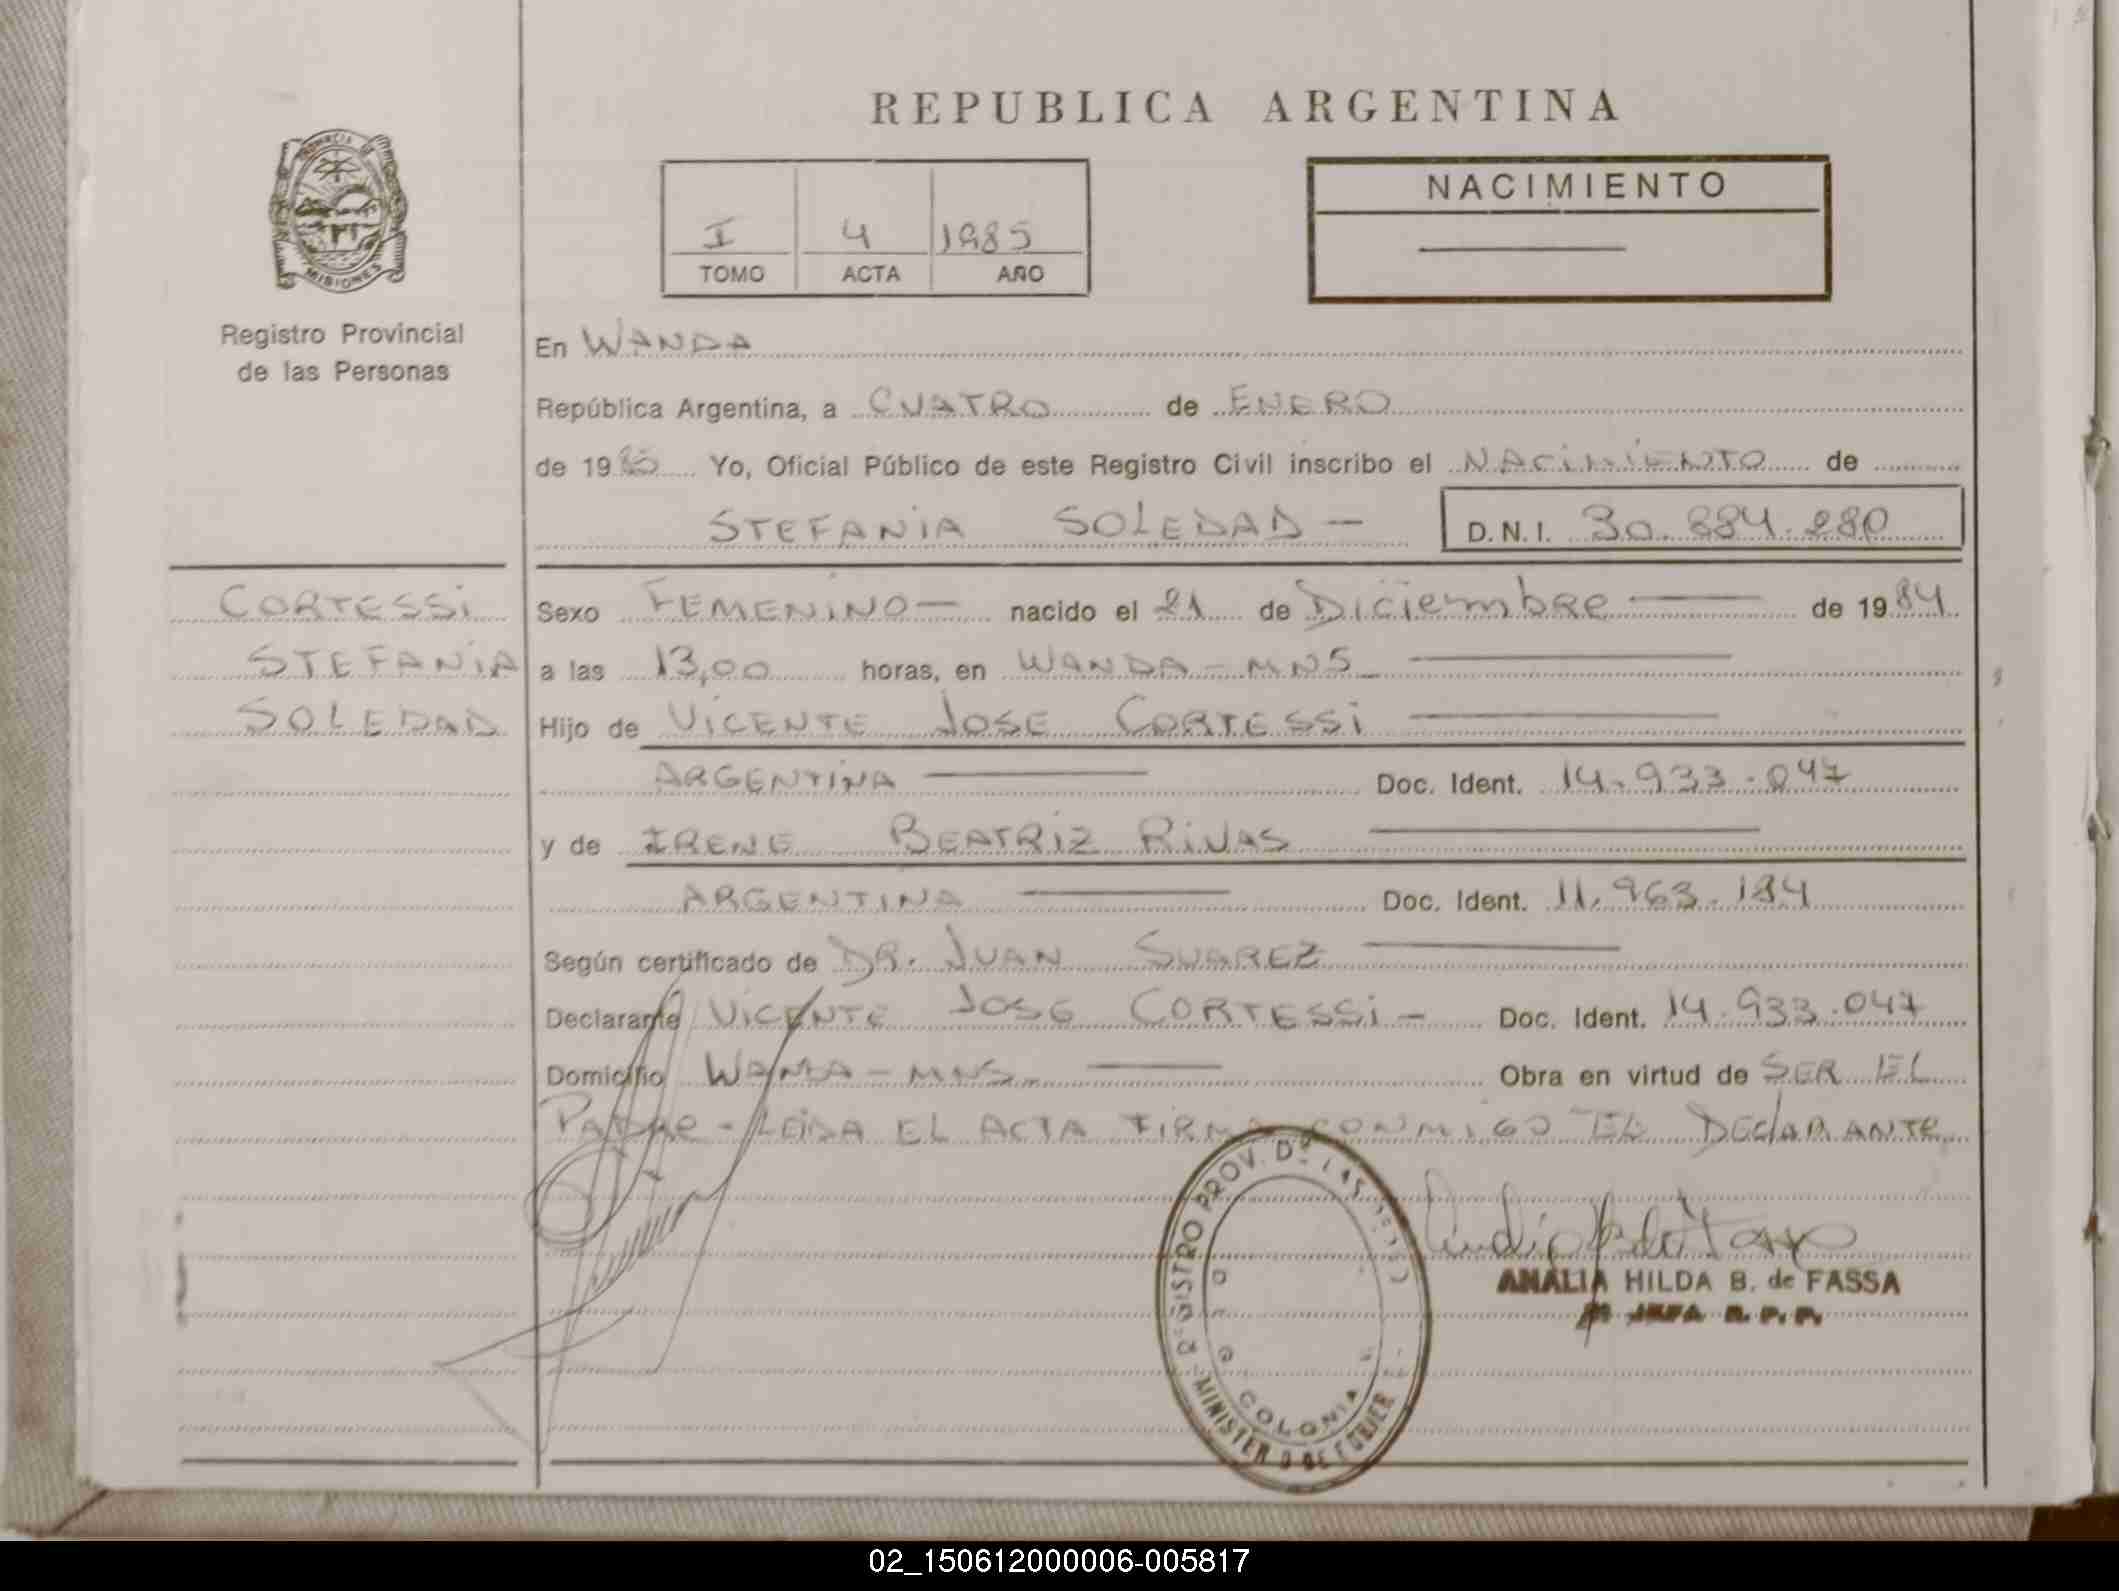 REPUBLICA ARGENTINA
PROVINCIA DE
MISIONES
Registro Provincial
de las Personas
I 4 1985
TOMO ACTA AÑO
NACIMIENTO
En WANDA
República Argentina, a CUATRO de ENERO
de 1985 Yo, Oficial Público de este Registro Civil inscribo el NACIMIENTO de
STEFANIA SOLEDAD — D.N.I. 30.884.280
CORTESSI
STEFANIA
SOLEDAD
Sexo FEMENINO — nacido el 21 de Diciembre — de 1984
a las 13,00 horas, en WANDA - MNS —
Hijo de VICENTE JOSE CORTESSI —
ARGENTINA — Doc. Ident. 14.933.047
y de IRENE BEATRIZ RIVAS —
ARGENTINA — Doc. Ident. 11.963.184
Según certificado de DR. JUAN SUAREZ —
Declarante VICENTE JOSE CORTESSI — Doc. Ident. 14.933.047
Domicilio WANDA - MNS. — Obra en virtud de SER EL
PADRE - LEIDA EL ACTA FIRMA CONMIGO EL DECLARANTE
REGISTRO PROV. DE LAS
COLONIA
MINISTERIO DE GOBIER
ANALIA HILDA B. de FASSA
JEFA R. P. P.
02_150612000006-005817